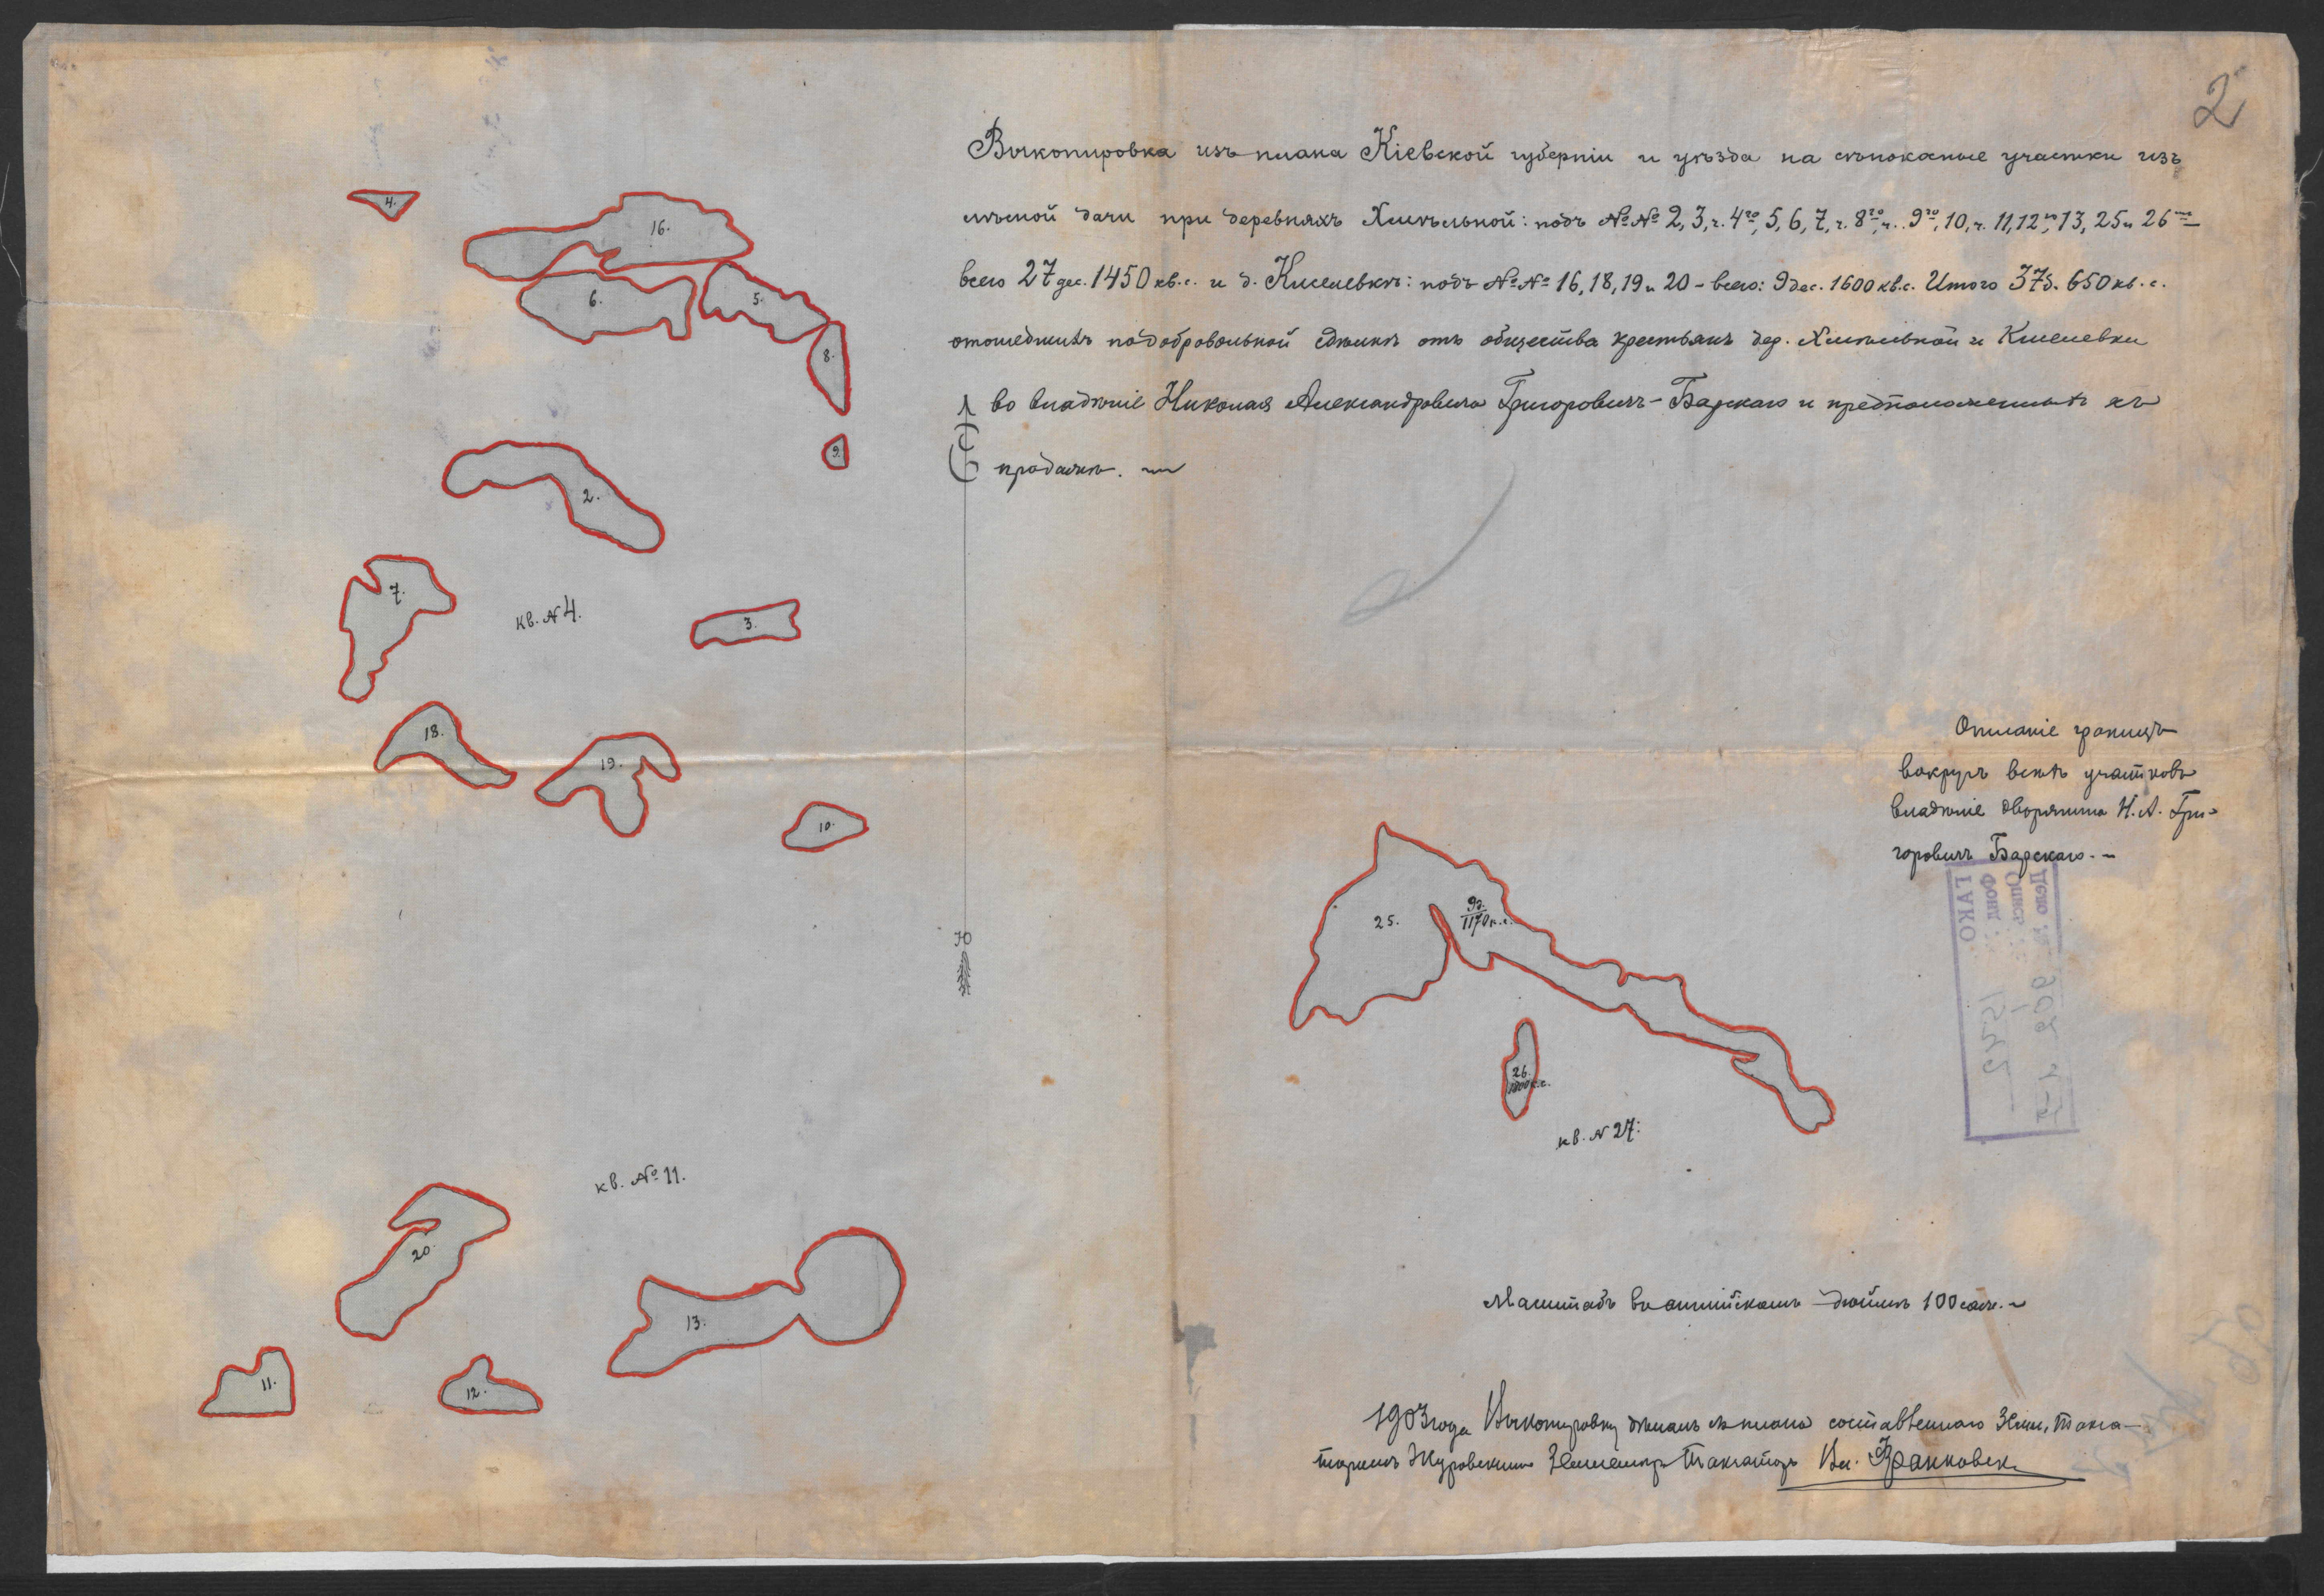 2
Выкопировка изъ плана Кіевской губерніи и уѣзда на сѣнокосные участки изъ
лѣсной дачи при деревняхъ Хмѣльной: подъ №№ 2, 3, ч. 4го, 5, 6, 7, ч. 8го, ч. 9го, 10, ч. 11, 12го, 13, 25 и 26
всего 27 дес. 1450 кв. с. и д. Киселевкѣ: подъ №№ 16, 18, 19 и 20 - всего: 9 дес. 1600 кв. с. Итого 37 д. 650 кв. с.
отошедшихъ по добровольной сдѣлкѣ отъ общества крестьянъ дер. Хмѣльной и Киселевки
во владѣніе Николая Александровича Григоровичъ-Барскаго и предположенныхъ къ
продажѣ.
С
4.
16.
6.
5.
8.
9.
2.
7.
кв. № 4.
3.
18.
19.
10.
Ю
Описаніе границъ
вокругъ всѣхъ участковъ
владѣніе дворянина Н. А. Гри-
горовичъ Барскаго. -
ГАКО
Фонд
Опись
Дело №
25.
9 д.
1170 к. с.
26.
кв. № 27.
кв. № 11.
20.
13.
11.
12.
Масштабъ въ англійскомъ дюймѣ 100 саж.
1903 года Выкопировку дѣлалъ съ плана составленнаго Земл. Такса-
торомъ Журовскимъ Землемѣр Таксаторъ Вл. Франковск